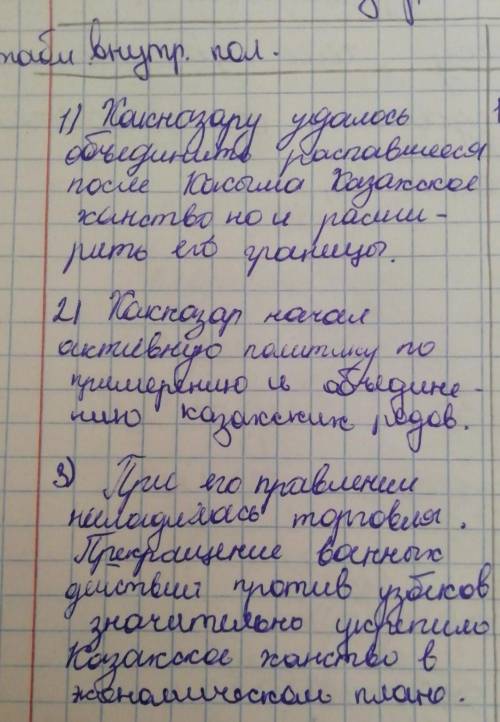 табл внутр. пол.
1) Хакназару удалось
объединить распавшееся
после Касыма Казахское
ханство но и расши-
рить его границы.
2) Хакназар начал
активную политику по
примерению и объедине-
нию казахских родов.
3) При его правлении
наладилась торговля.
Прекращение военных
действий против узбеков
значительно укрепило
Казахское ханство в
экономическом плане.